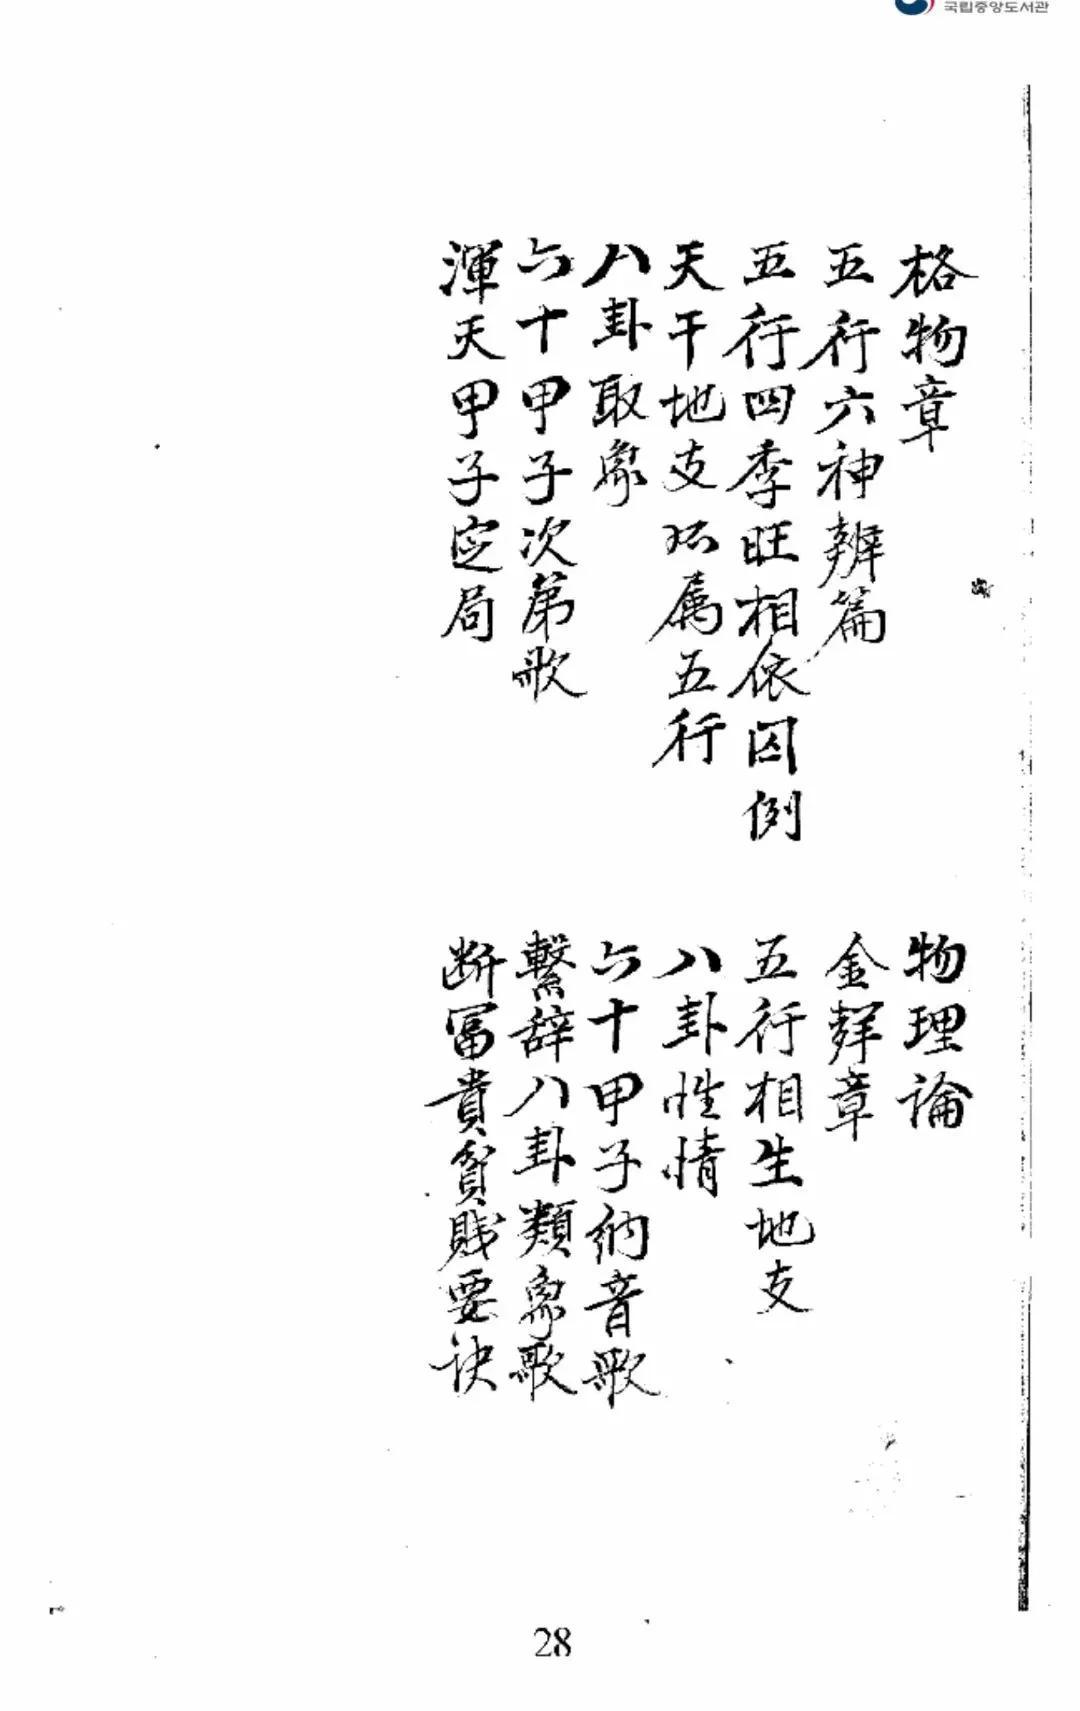 국립중앙도서관
格物章
物理論
五行六神辨篇
金鎖章
五行四季旺相依囚例
五行相生地支
天干地支所属五行
八卦性情
八卦取象
六十甲子納音歌
六十甲子次第歌
繫辞八卦類象歌
渾天甲子定局
断冨貴貧賎要诀
28